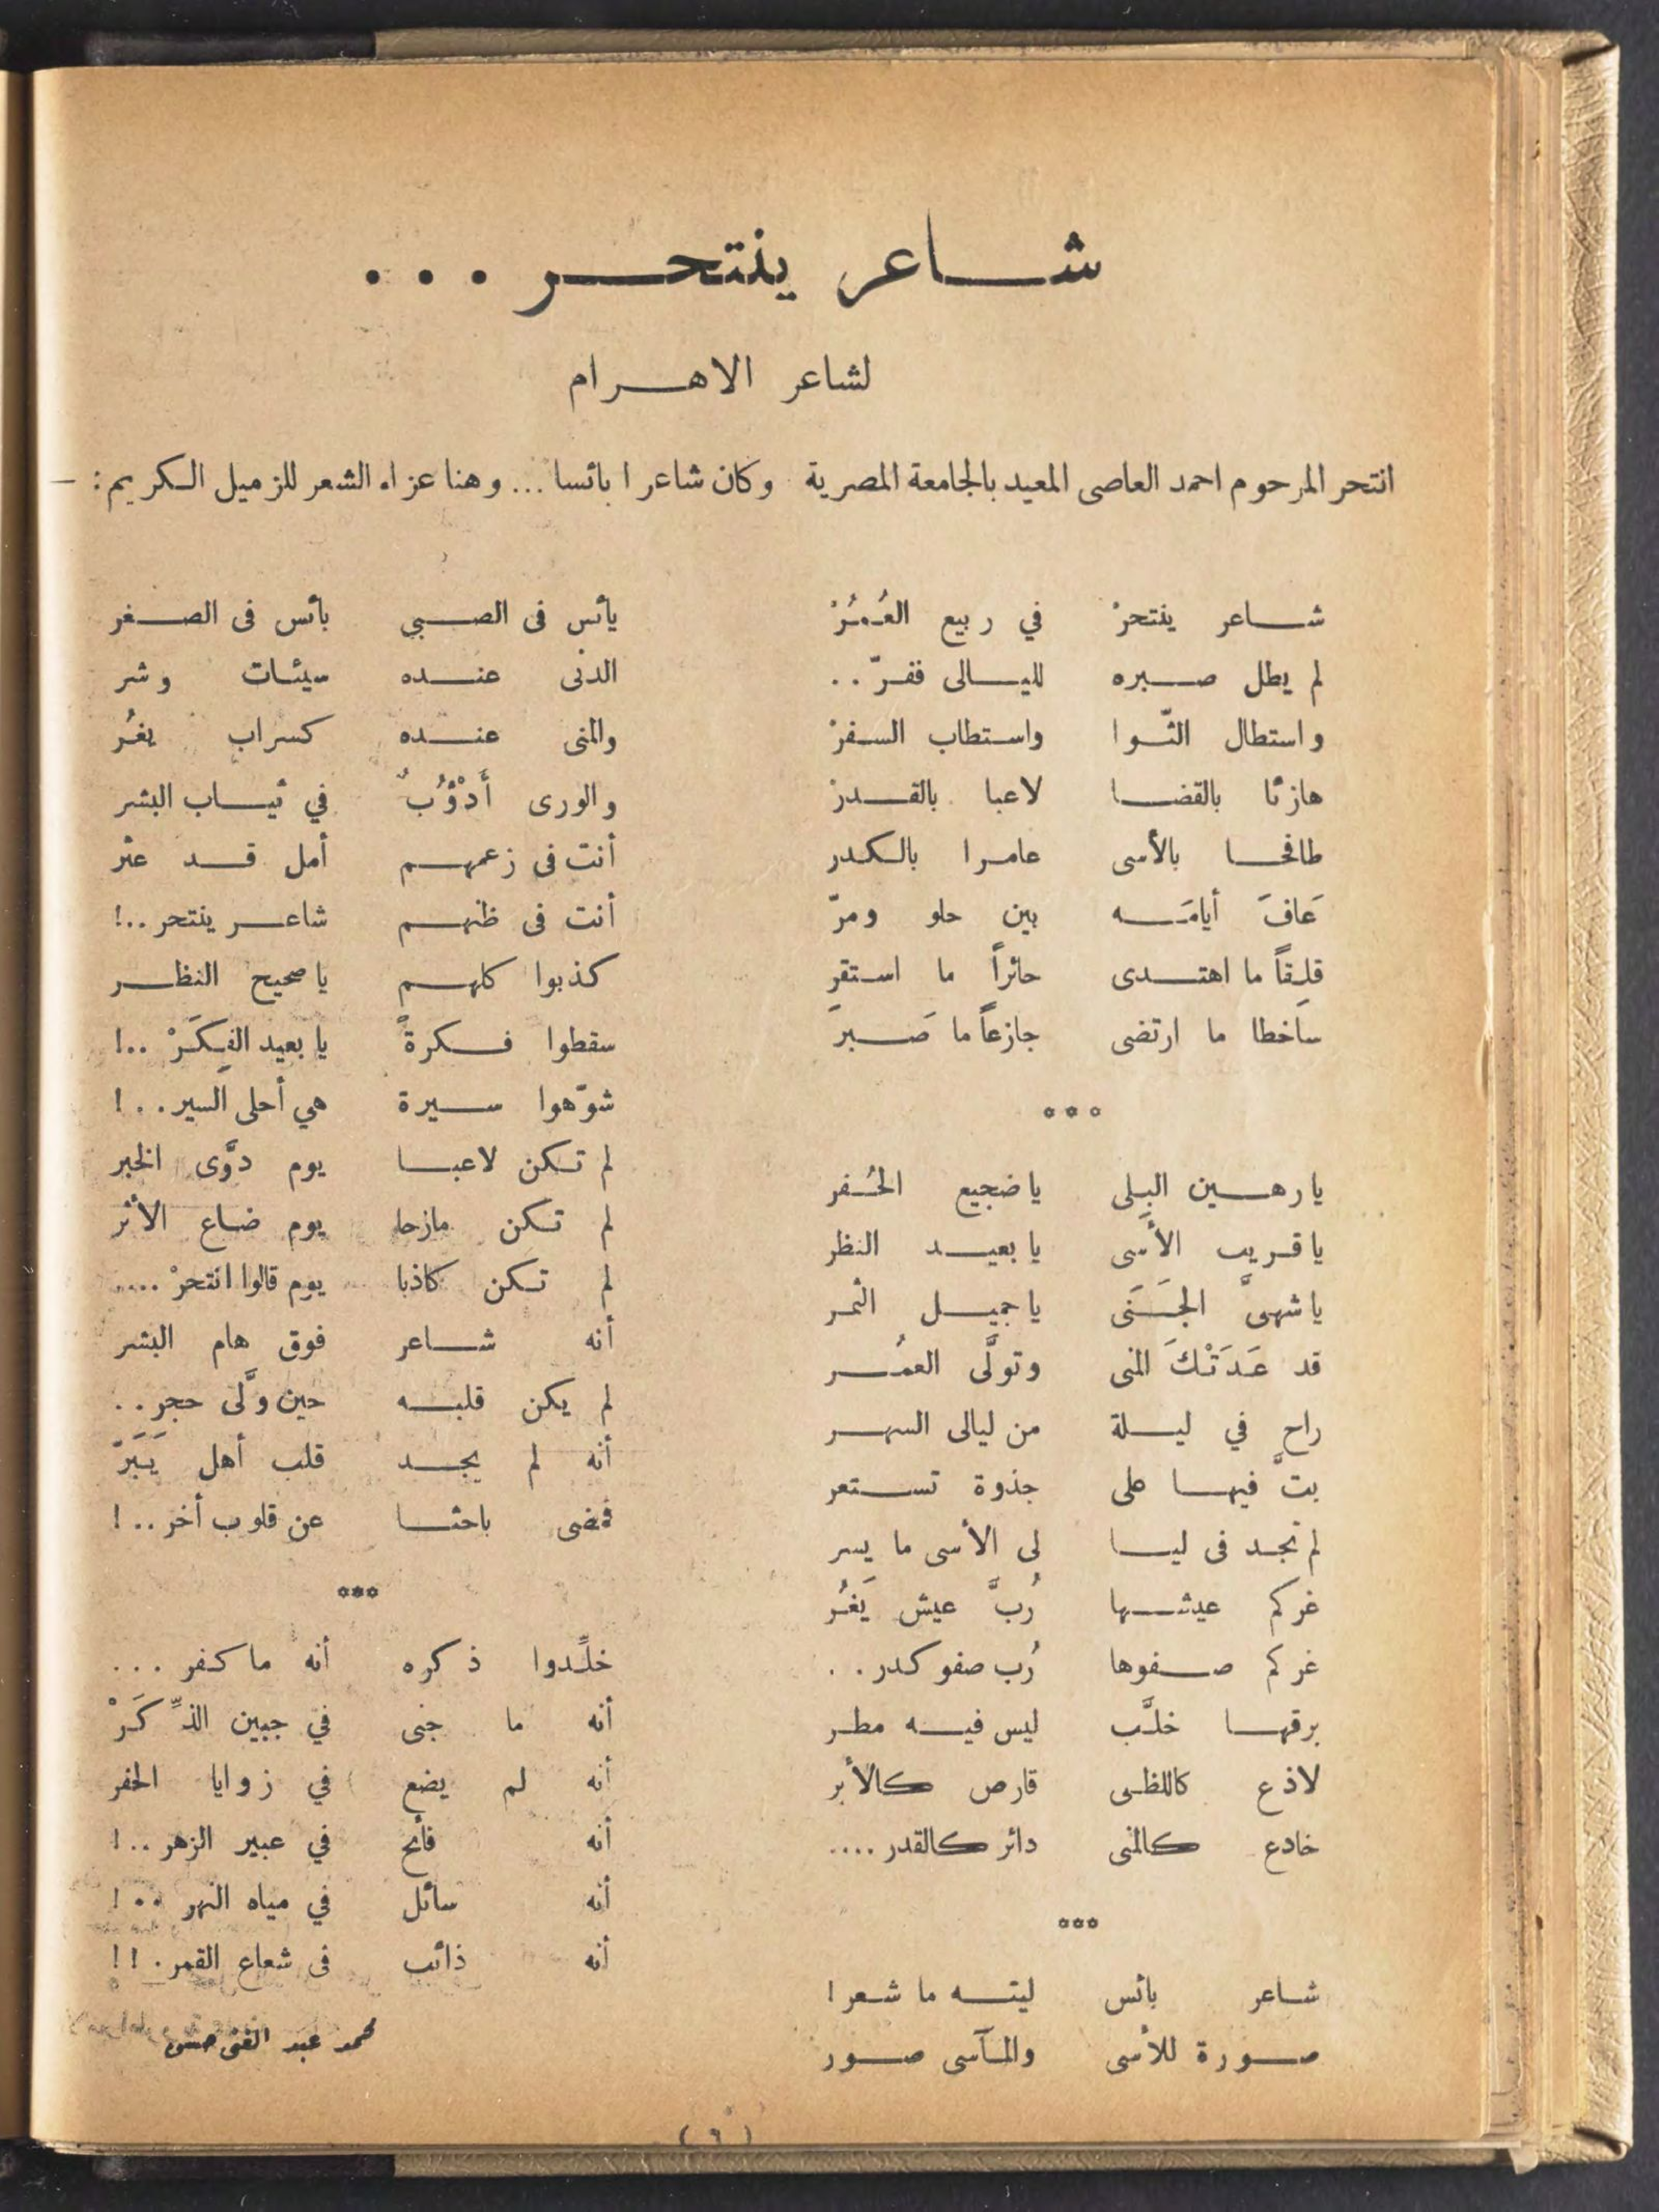 شاعر ينتحر . . .
لشاعر الاهرام
انتحر المرحوم احمد العاصى المعيد بالجامعة المصرية وكان شاعرا بائسا ... وهنا عزاء الشعر للزميل الكريم : —
شاعر ينتحرْ في ربيع العُمُرْ
لم يطل صبره لليالى ففرّ . .
واستطال الثّوا واستطاب السفرْ
هازئا بالقضا لاعبا بالقدرْ
طافحا بالأسى عامرا بالكدر
عَافَ أيامَه بين حلو ومرّ
قلِقاً ما اهتدى حائراً ما استقر
ساخطا ما ارتضى جازعاً ما صَبرَ
° ° °
يا رهين البلى يا ضجيع الحُفر
يا قريب الأسَى يا بعيد النظر
يا شهىَّ الجَنَى يا جميل الثمر
قد عَدَتْكَ المنى وتولَّى العمُر
راح في ليلة من ليالى السهر
بتَّ فيها على جذوة تستعر
لم تجد فى ليا لى الأسى ما يسر
غركم عيشها رُبَّ عيش يَغُر
غركم صفوها رُب صفو كدر . .
برقها خلَّب ليس فيه مطر
لاذع كاللظى قارص كالأبر
خادع كالمنى دائر كالقدر ....
°°°
شاعر بائس ليته ما شعرا
صورة للأسى والمآسى صور
يأئس فى الصبي بائس فى الصغر
الدنى عنده سيئات وشر
والمنى عنده كسراب يغُر
والورى أَدْؤُبٌ في ثياب البشر
أنت فى زعمهم أمل قد عثر
أنت فى ظنهم شاعر ينتحر ..!
كذبوا كلهم يا صحيح النظر
سقطوا فكرةً يا بعيد الفِكَرْ ..!
شوّهوا سيرة هي أحلى السير . . !
لم تكن لاعبا يوم دوَّى الخبر
لم تكن مازحا يوم ضاع الأثر
لم تكن كاذبا يوم قالوا انتحرْ ....
أنه شاعر فوق هام البشر
لم يكن قلبه حين ولَّى حجر . .
أنه لم يجد قلب أهل يَبَرّ
فمضى باحثا عن قلوب أخر . . !
°°°
خلِّدوا ذكره أنه ما كفر . . .
أنه ما جنى في جبين الذِّكَرْ
أنه لم يضع في زوايا الحفر
أنه فائح في عبير الزهر . . !
أنه سائل في مياه النهر . . !
أنه ذائب فى شعاع القمر . ! !
محمد عبد الغنى حسن
( ٦ )